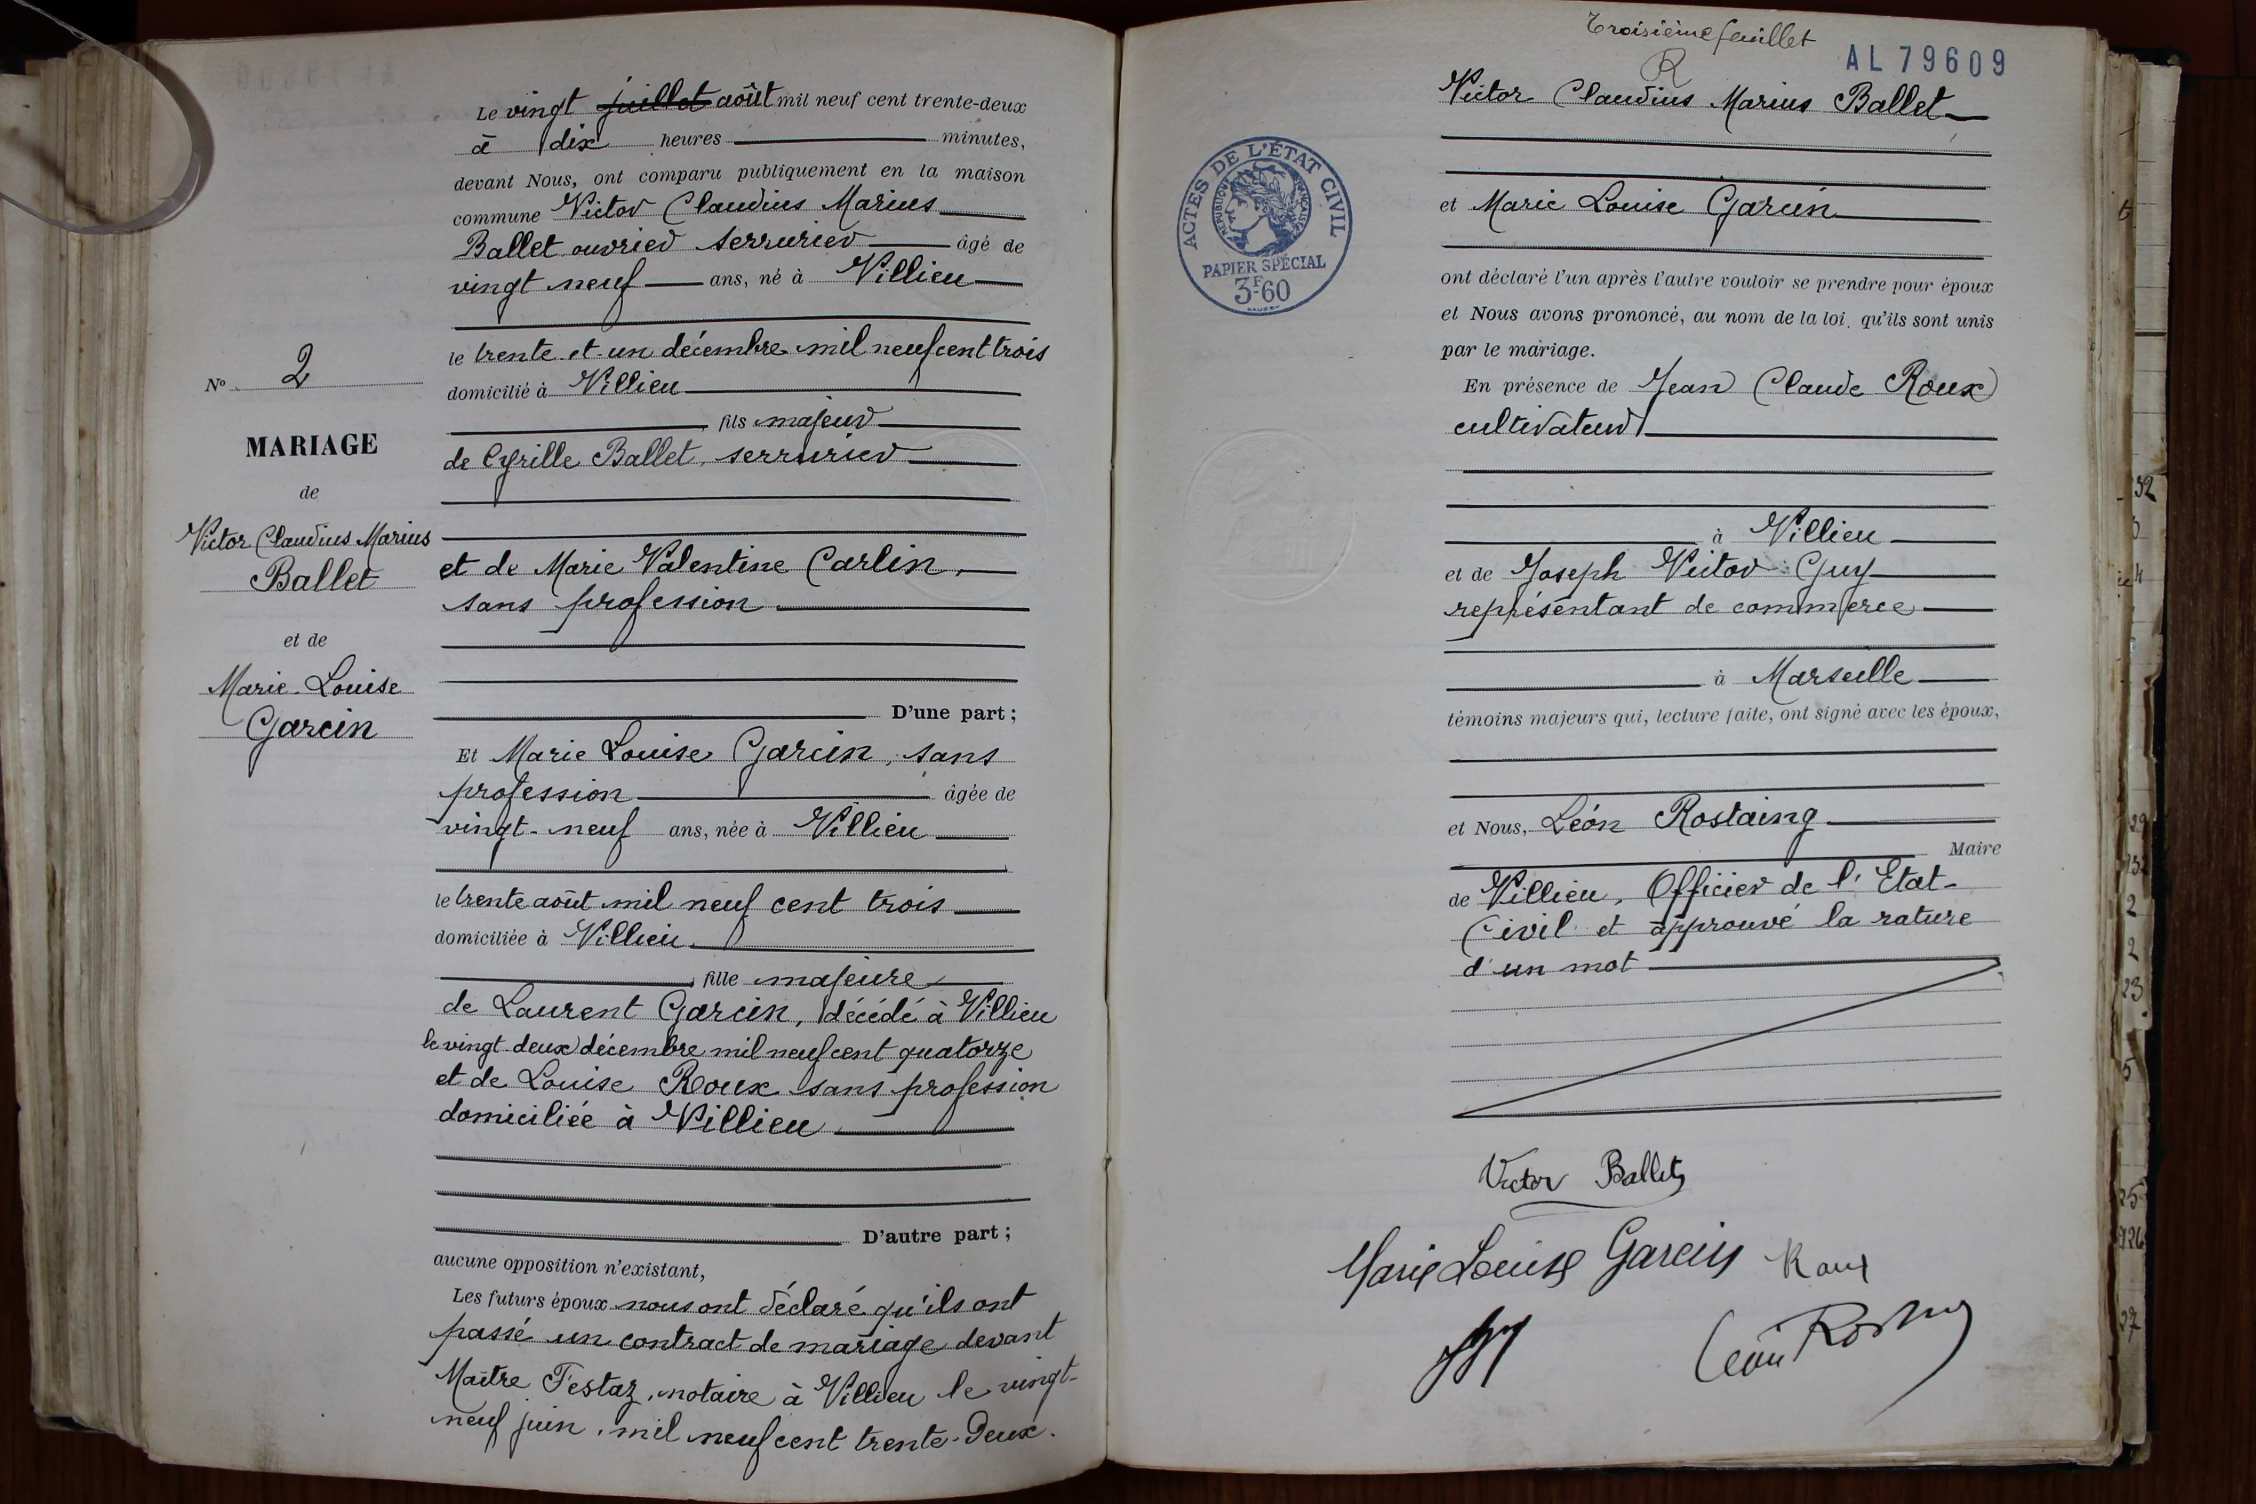 Le vingt juillet août mil neuf cent trente-deux
à dix heures minutes,
devant Nous, ont comparu publiquement en la maison
commune Victor Claudius Marius
Ballet ouvrier serrurier âgé de
vingt neuf ans, né à Villieu
le trente et un décembre mil neuf cent trois
domicilié à Villieu
fils majeur
de Cyrille Ballet, serrurier
et de Marie Valentine Carlin,
sans profession
D'une part ;
Et Marie Louise Garcin, sans
profession âgée de
vingt-neuf ans, née à Villieu
le trente août mil neuf cent trois
domiciliée à Villieu
fille majeure
de Laurent Garcin, décédé à Villieu
le vingt-deux décembre mil neuf cent quatorze
et de Louise Roux sans profession
domiciliée à Villieu
D'autre part ;
aucune opposition n'existant,
Les futurs époux nous ont déclaré qu'ils ont
passé un contract de mariage devant
Maître Festaz, notaire à Villieu le vingt-
neuf juin, mil neuf cent trente-deux.
No 2
MARIAGE
de
Victor Claudius Marius
Ballet
et de
Marie-Louise
Garcin
Troisième feuillet
R
AL 79609
Victor Claudius Marius Ballet
et Marie Louise Garcin
ont déclaré l'un après l'autre vouloir se prendre pour époux
et Nous avons prononcé, au nom de la loi, qu'ils sont unis
par le mariage.
En présence de Jean Claude Roux
cultivateur
à Villieu
et de Joseph Victor Guy
représentant de commerce
à Marseille
témoins majeurs qui, lecture faite, ont signé avec les époux,
et Nous, Léon Rostaing
Maire
de Villieu, Officier de l'Etat-
Civil et approuvé la rature
d'un mot
Victor Ballet
Marie Louise Garcin Roux
Léon Rostaing
ACTES DE L'ÉTAT CIVIL
RÉPUBLIQUE FRANÇAISE
PAPIER SPÉCIAL
3F60